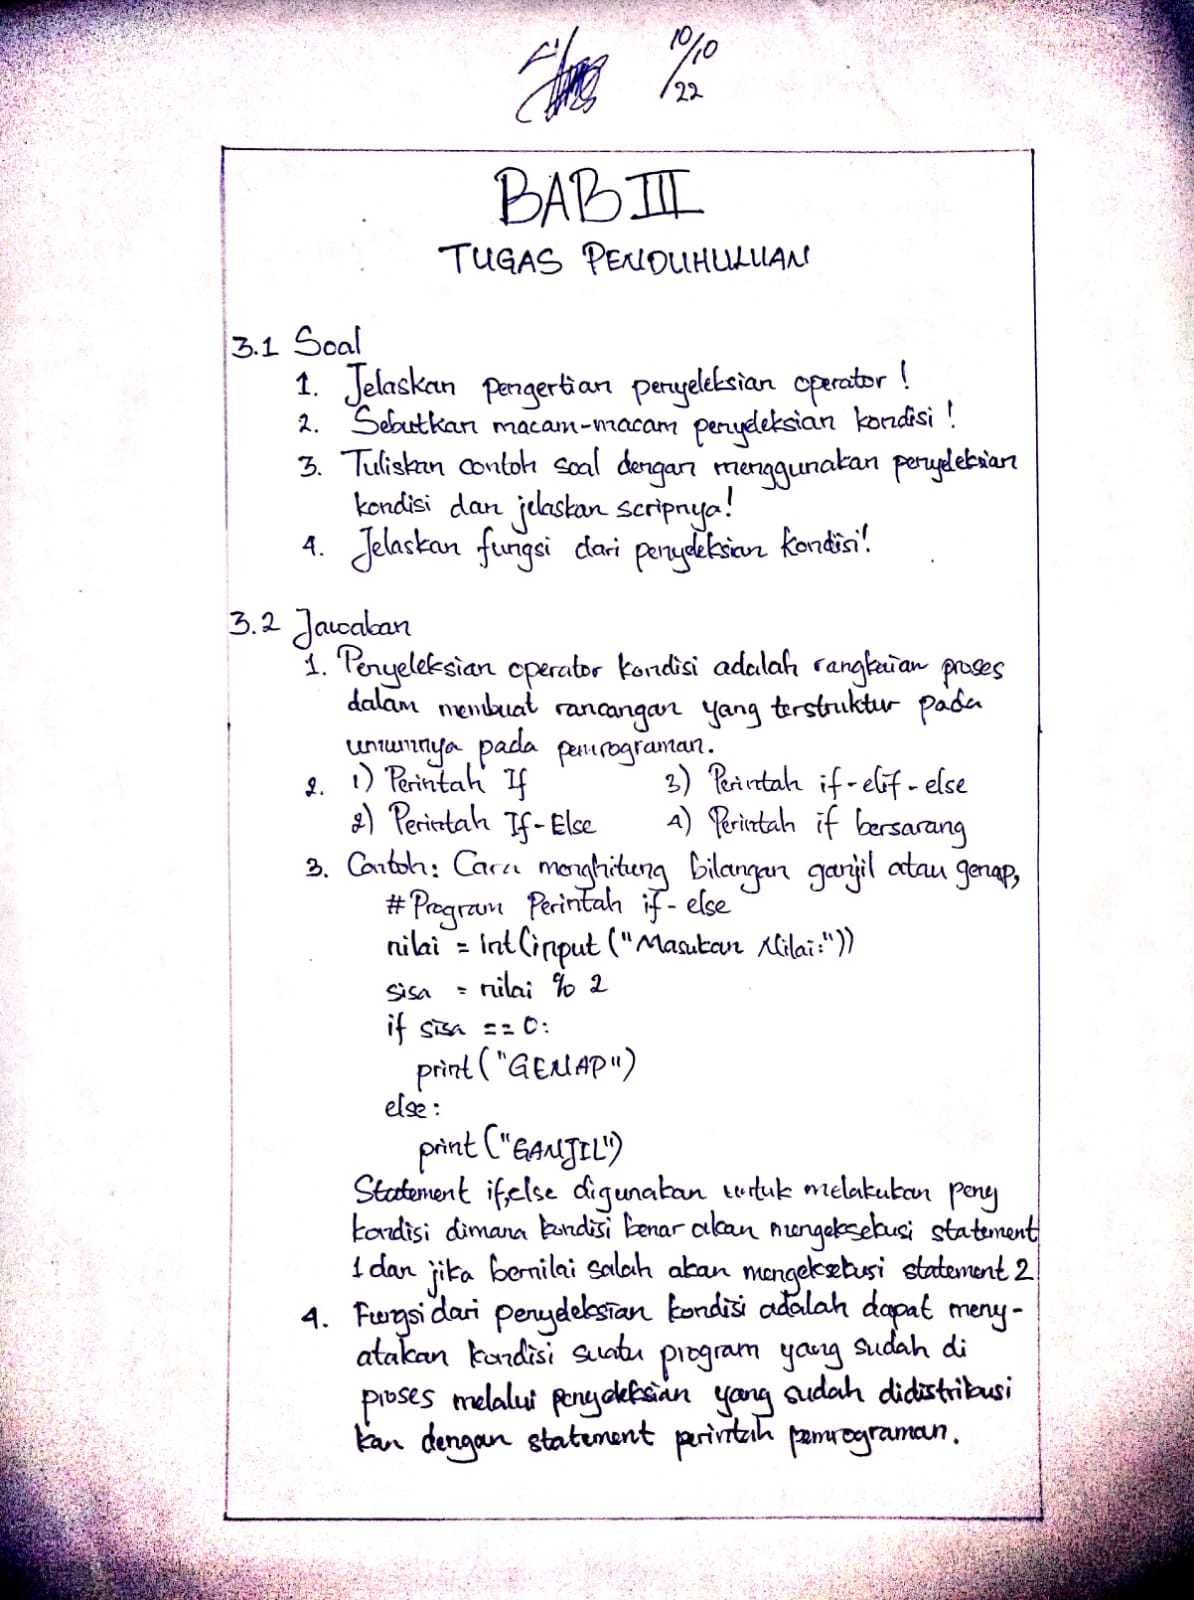 10/10
/22
BAB III
TUGAS PENDUHULUAN
3.1 Soal
1. Jelaskan pengertian penyeleksian operator !
2. Sebutkan macam-macam penyeleksian kondisi !
3. Tuliskan contoh soal dengan menggunakan penyeleksian
kondisi dan jelaskan scripnya!
4. Jelaskan fungsi dari penyeleksian kondisi!
3.2 Jawaban
1. Penyeleksian operator kondisi adalah rangkaian proses
dalam membuat rancangan yang terstruktur pada
umumnya pada pemrograman.
2. 1) Perintah If 3) Perintah if-elif-else
2) Perintah If-Else 4) Perintah if bersarang
3. Contoh: Cara menghitung bilangan ganjil atau genap,
# Program Perintah if-else
nilai = int(input("Masukan Nilai:"))
sisa = nilai % 2
if sisa == 0:
print("GENAP")
else:
print("GANJIL")
Statement if,else digunakan untuk melakukan peny
kondisi dimana kondisi benar akan mengeksekusi statement
1 dan jika bernilai salah akan mengeksekusi statement 2
4. Fungsi dari penyeleksian kondisi adalah dapat meny-
atakan kondisi suatu program yang sudah di
proses melalui penyeleksian yang sudah didistribusi
kan dengan statement perintah pemrograman.